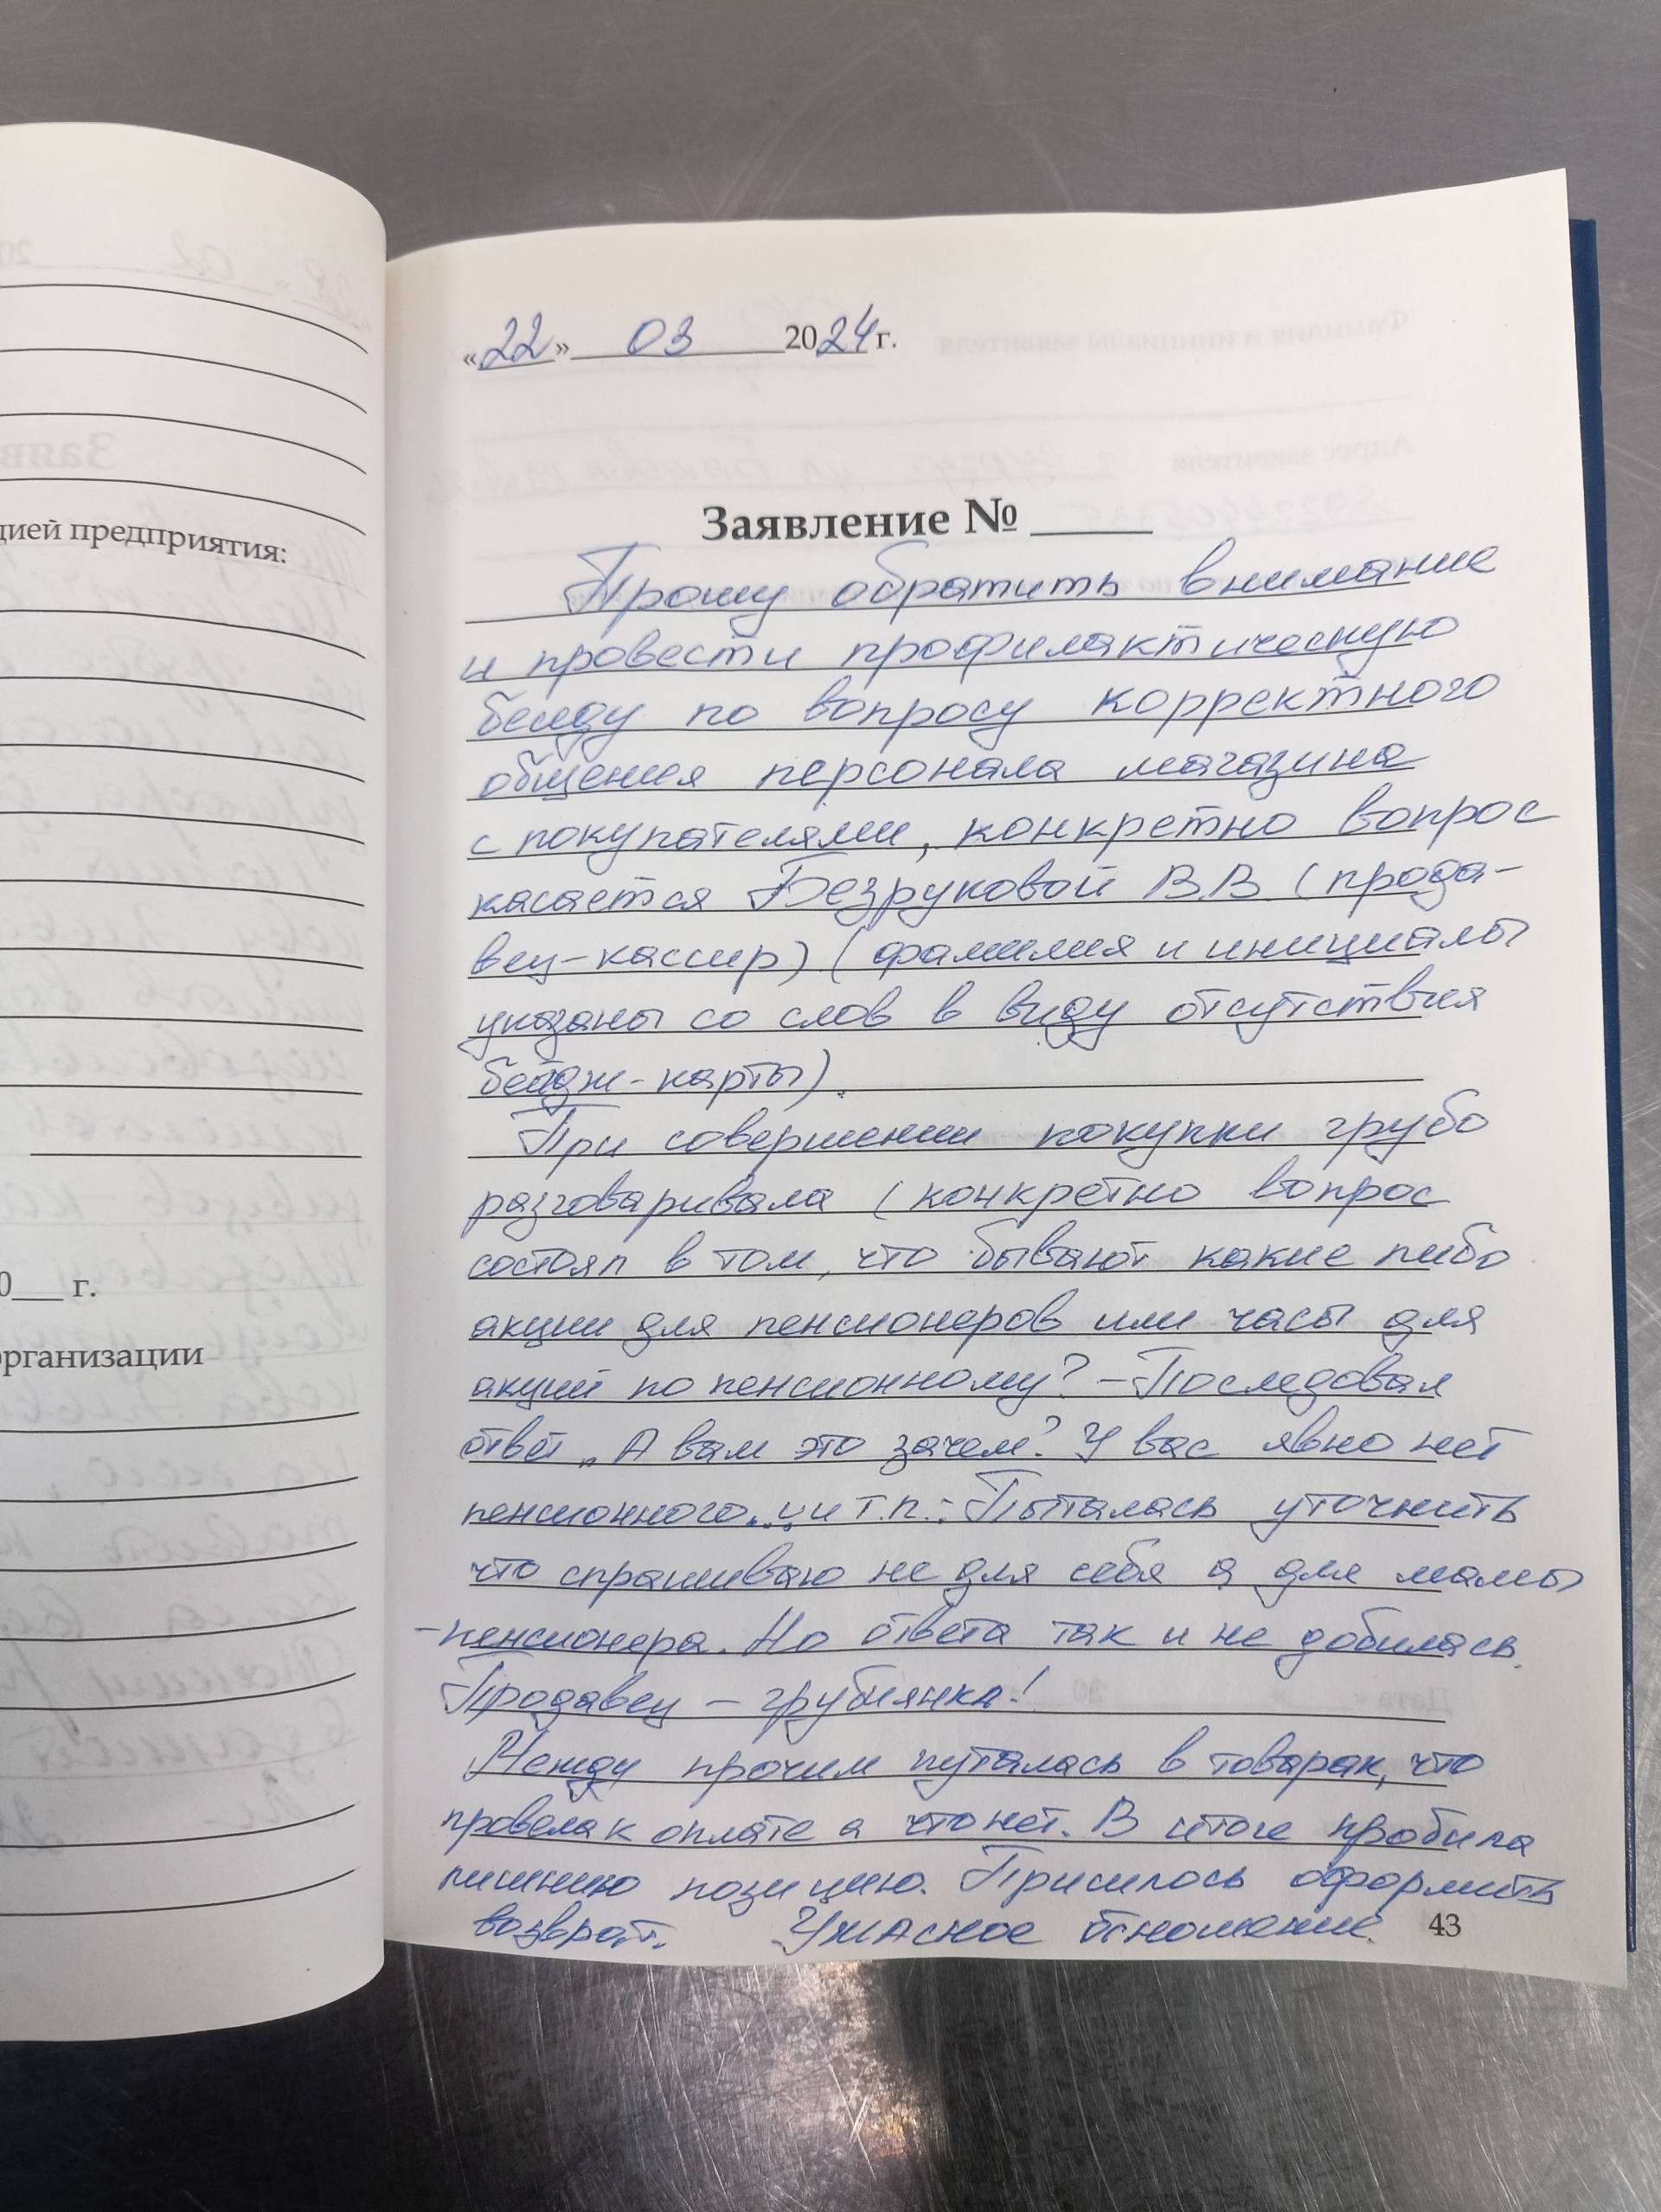 цией предприятия:
0___ г.
организации
«22» 03 2024 г.
Заявление № ____
Прошу обратить внимание
и провести профилактическую
беседу по вопросу корректного
общения персонала магазина
с покупателями, конкретно вопрос
касается Безруковой В.В. (прода-
вец-кассир) (фамилия и инициалы
указаны со слов в виду отсутствия
бейдж-карты).
При совершении покупки грубо
разговаривала (конкретно вопрос
состоял в том, что бывают какие либо
акции для пенсионеров или часы для
акций по пенсионному? - Последовал
ответ „А вам это зачем? У вас явно нет
пенсионного..." и т.п. - Пыталась уточнить
что спрашиваю не для себя а для мамы
-пенсионера. Но ответа так и не добилась.
Продавец - грубиянка!
Между прочим путалась в товарах, что
провела к оплате а что нет. В итоге пробила
лишнию позицию. Присилось оформить
возврат. Ужасное отношение.
43